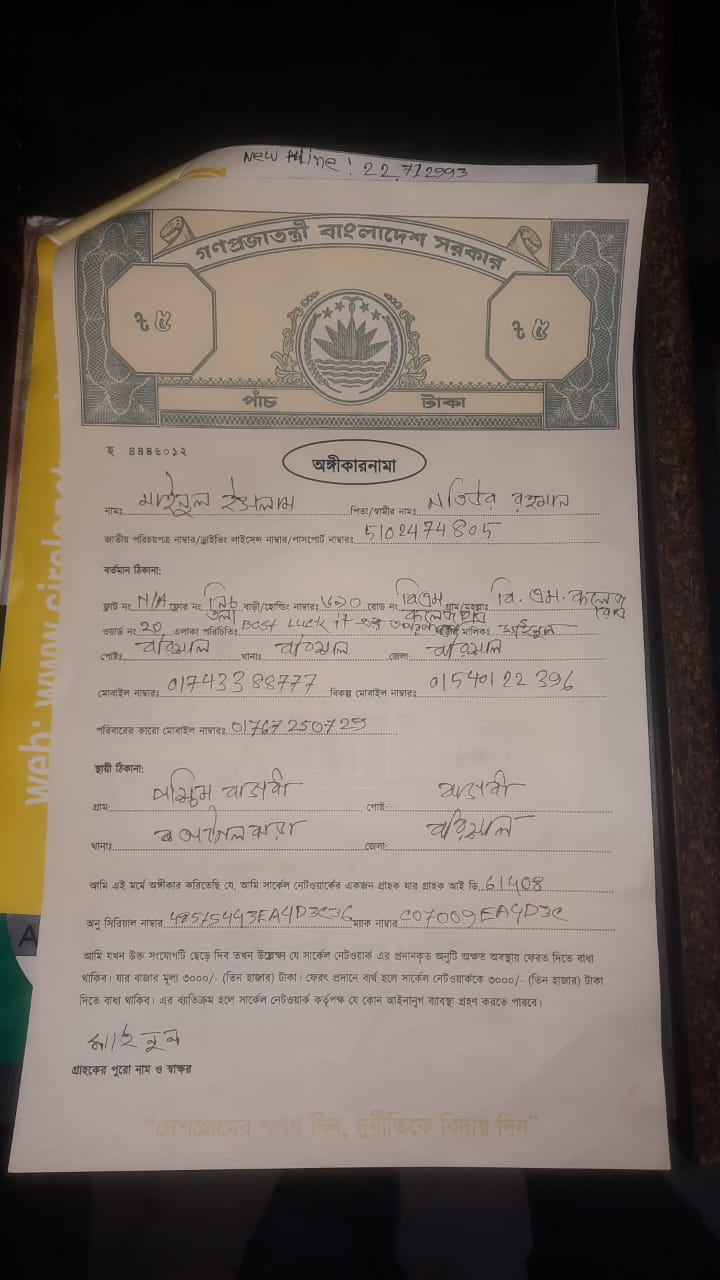 New Aline ! 22.712993
গণপ্রজাতন্ত্রী বাংলাদেশ সরকার
৳ ৫ ৳ ৫
পাঁচ টাকা
হ ৪৪৪৬০১২
অঙ্গীকারনামা
নামঃ মাইনুল ইসলাম পিতা/স্বামীর নামঃ মতিউর রহমান
জাতীয় পরিচয়পত্র নাম্বার/ড্রাইভিং লাইসেন্স নাম্বার/পাসপোর্ট নাম্বারঃ 5102474805
বর্তমান ঠিকানা:
ফ্লাট নং N/A ফ্লোর নং নিচ তলা বাড়ী/হোল্ডিং নাম্বারঃ ৬৯০ রোড নং বিএম কলেজ গ্রাম/মহল্লাঃ বি. এম. কলেজ রোড
ওয়ার্ড নং 20 এলাকা পরিচিতিঃ Best Luck IT এর মালিকঃ মাইনুল
পোষ্টঃ বরিশাল থানাঃ বরিশাল জেলা: বরিশাল
মোবাইল নাম্বারঃ 01743388777 বিকল্প মোবাইল নাম্বারঃ 01540122396
পরিবারের কারো মোবাইল নাম্বারঃ 01767250729
স্থায়ী ঠিকানা:
গ্রাম: পশ্চিম বাগধা পোষ্ট: বাগধা
থানাঃ আগৈলঝারা জেলা: বরিশাল
আমি এই মর্মে অঙ্গীকার করিতেছি যে, আমি সার্কেল নেটওয়ার্কের একজন গ্রাহক যার গ্রাহক আই ডি. 61408
অনু সিরিয়াল নাম্বার 48575443EA4D3C36 ম্যাক নাম্বার C07009EA4D3C
আমি যখন উক্ত সংযোগটি ছেড়ে দিব তখন উল্লেক্ষ্য যে সার্কেল নেটওয়ার্ক এর প্রদানকৃত অনুটি অক্ষত অবস্থায় ফেরত দিতে বাধ্য
থাকিব। যার বাজার মূল্য ৩০০০/- (তিন হাজার) টাকা। ফেরৎ প্রদানে ব্যর্থ হলে সার্কেল নেটওয়ার্ককে ৩০০০/- (তিন হাজার) টাকা
দিতে বাধ্য থাকিব। এর ব্যতিক্রম হলে সার্কেল নেটওয়ার্ক কর্তৃপক্ষ যে কোন আইনানুগ ব্যাবস্থা গ্রহণ করতে পারবে।
মাইনুল
গ্রাহকের পুরো নাম ও স্বাক্ষর
"দেশপ্রেমের শপথ নিন, দুর্নীতিকে বিদায় দিন"
web: www.circlenet
A